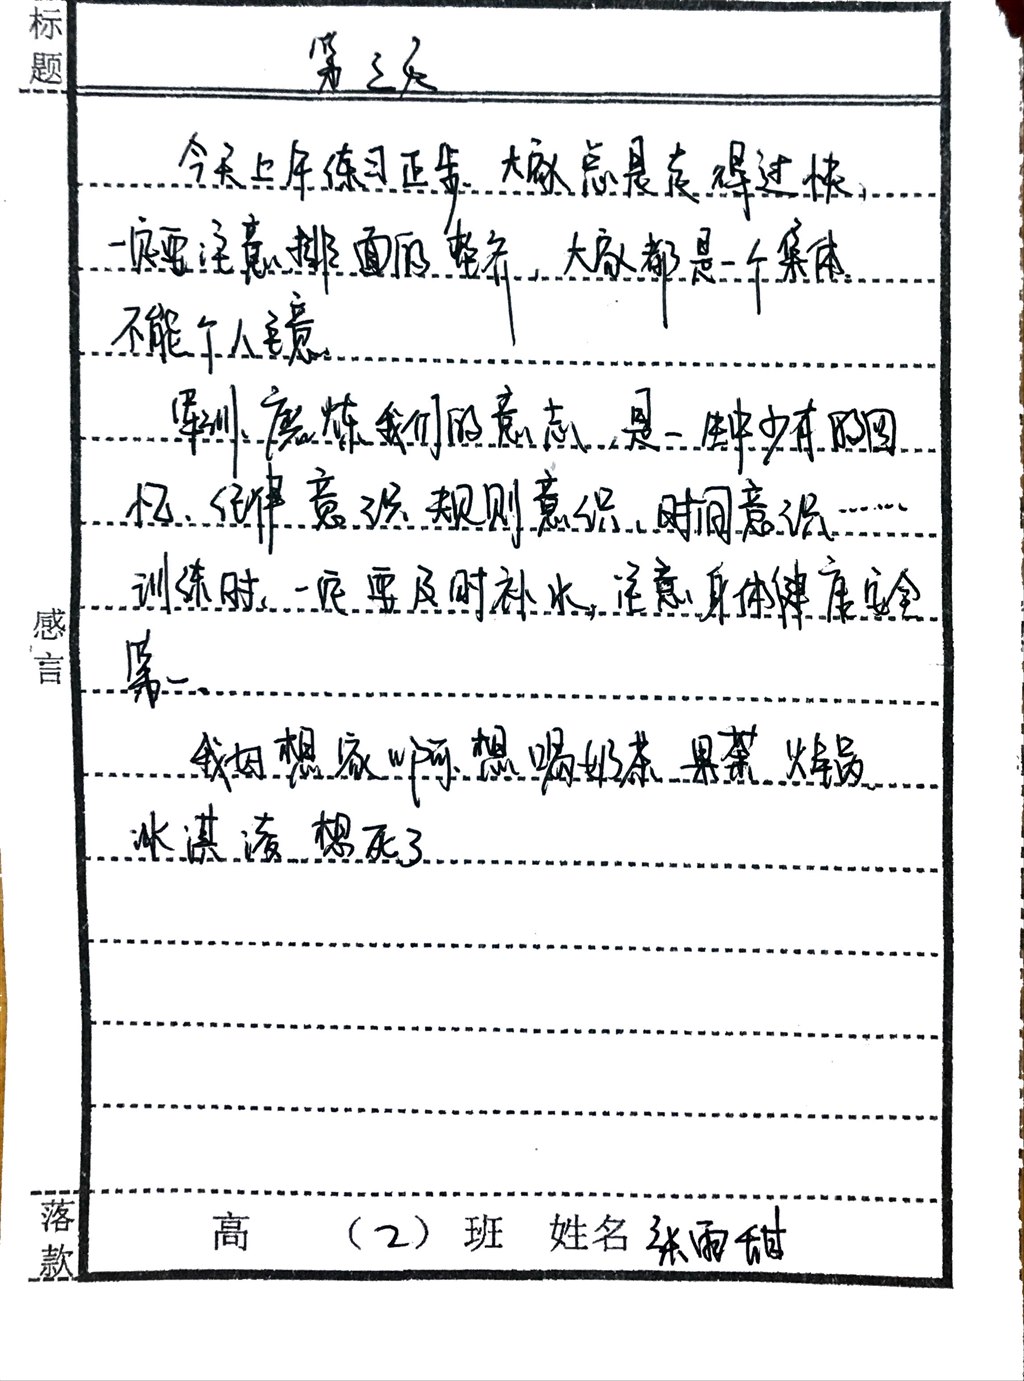 标题
第三天
今天上午练习正步、大家总是走得过快、
一定要注意排面的整齐，大家都是一个集体
不能个人主意。
军训、磨炼我们的意志，是一生中少有的回
忆、纪律意识 规则意识、时间意识……
训练时、一定要及时补水，注意身体健康安全
第一、
感言
想家啊 想喝奶茶 果茶 火锅
冰淇凌 想死了
落款
高 （2）班 姓名 张雨甜